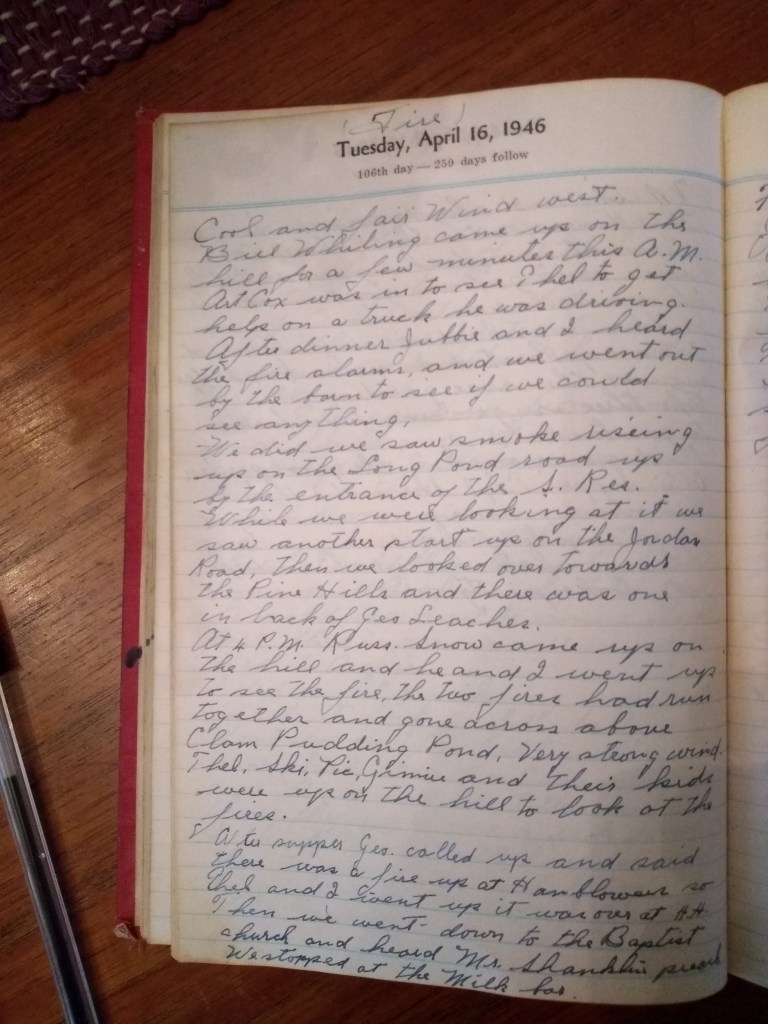 (Fire)
Tuesday, April 16, 1946
106th day — 259 days follow
Cool and fair Wind west.
Bill Whiting came up on the
hill for a few minutes this A.M.
Art Cox was in to see Thel to get
help on a truck he was driving.
After dinner Jubbie and I heard
the fire alarms, and we went out
by the barn to see if we could
see anything,
We did we saw smoke riseing
up on the Long Pond road up
by the entrance of the S. Res.
While we were looking at it we
saw another start up on the Jordan
Road, Then we looked over towards
the Pine Hills and there was one
in back of Geo Leaches.
At 4 P.M. Russ. Snow came up on
the hill and he and I went up
to see the fire, the two fires had run
together and gone across above
Clam Pudding Pond, Very strong wind.
Thel, Ski, Pic, Gimie and their kids
were up on the hill to look at the
fires.
After supper Geo. called up and said
there was a fire up at Hanblowers so
Thel and I went up it was over at H.H.
Then we went down to the Baptist
church and heard Mr. Shanklin preach
We stopped at the Milk bar.